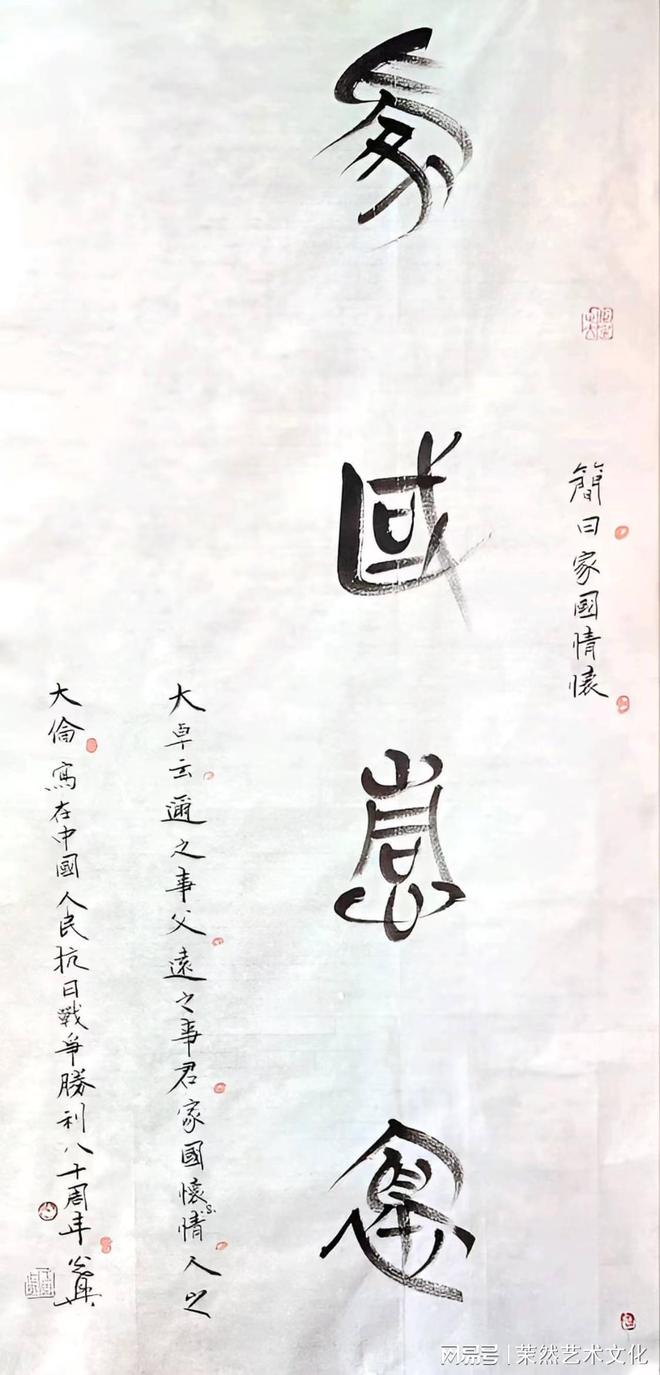 簡曰家國情懷
家國
大卓云邇之事父遠之事君家國懷情人之
大倫寫在中國人民抗日戰爭勝利八十周年
网易号 | 茉然艺术文化